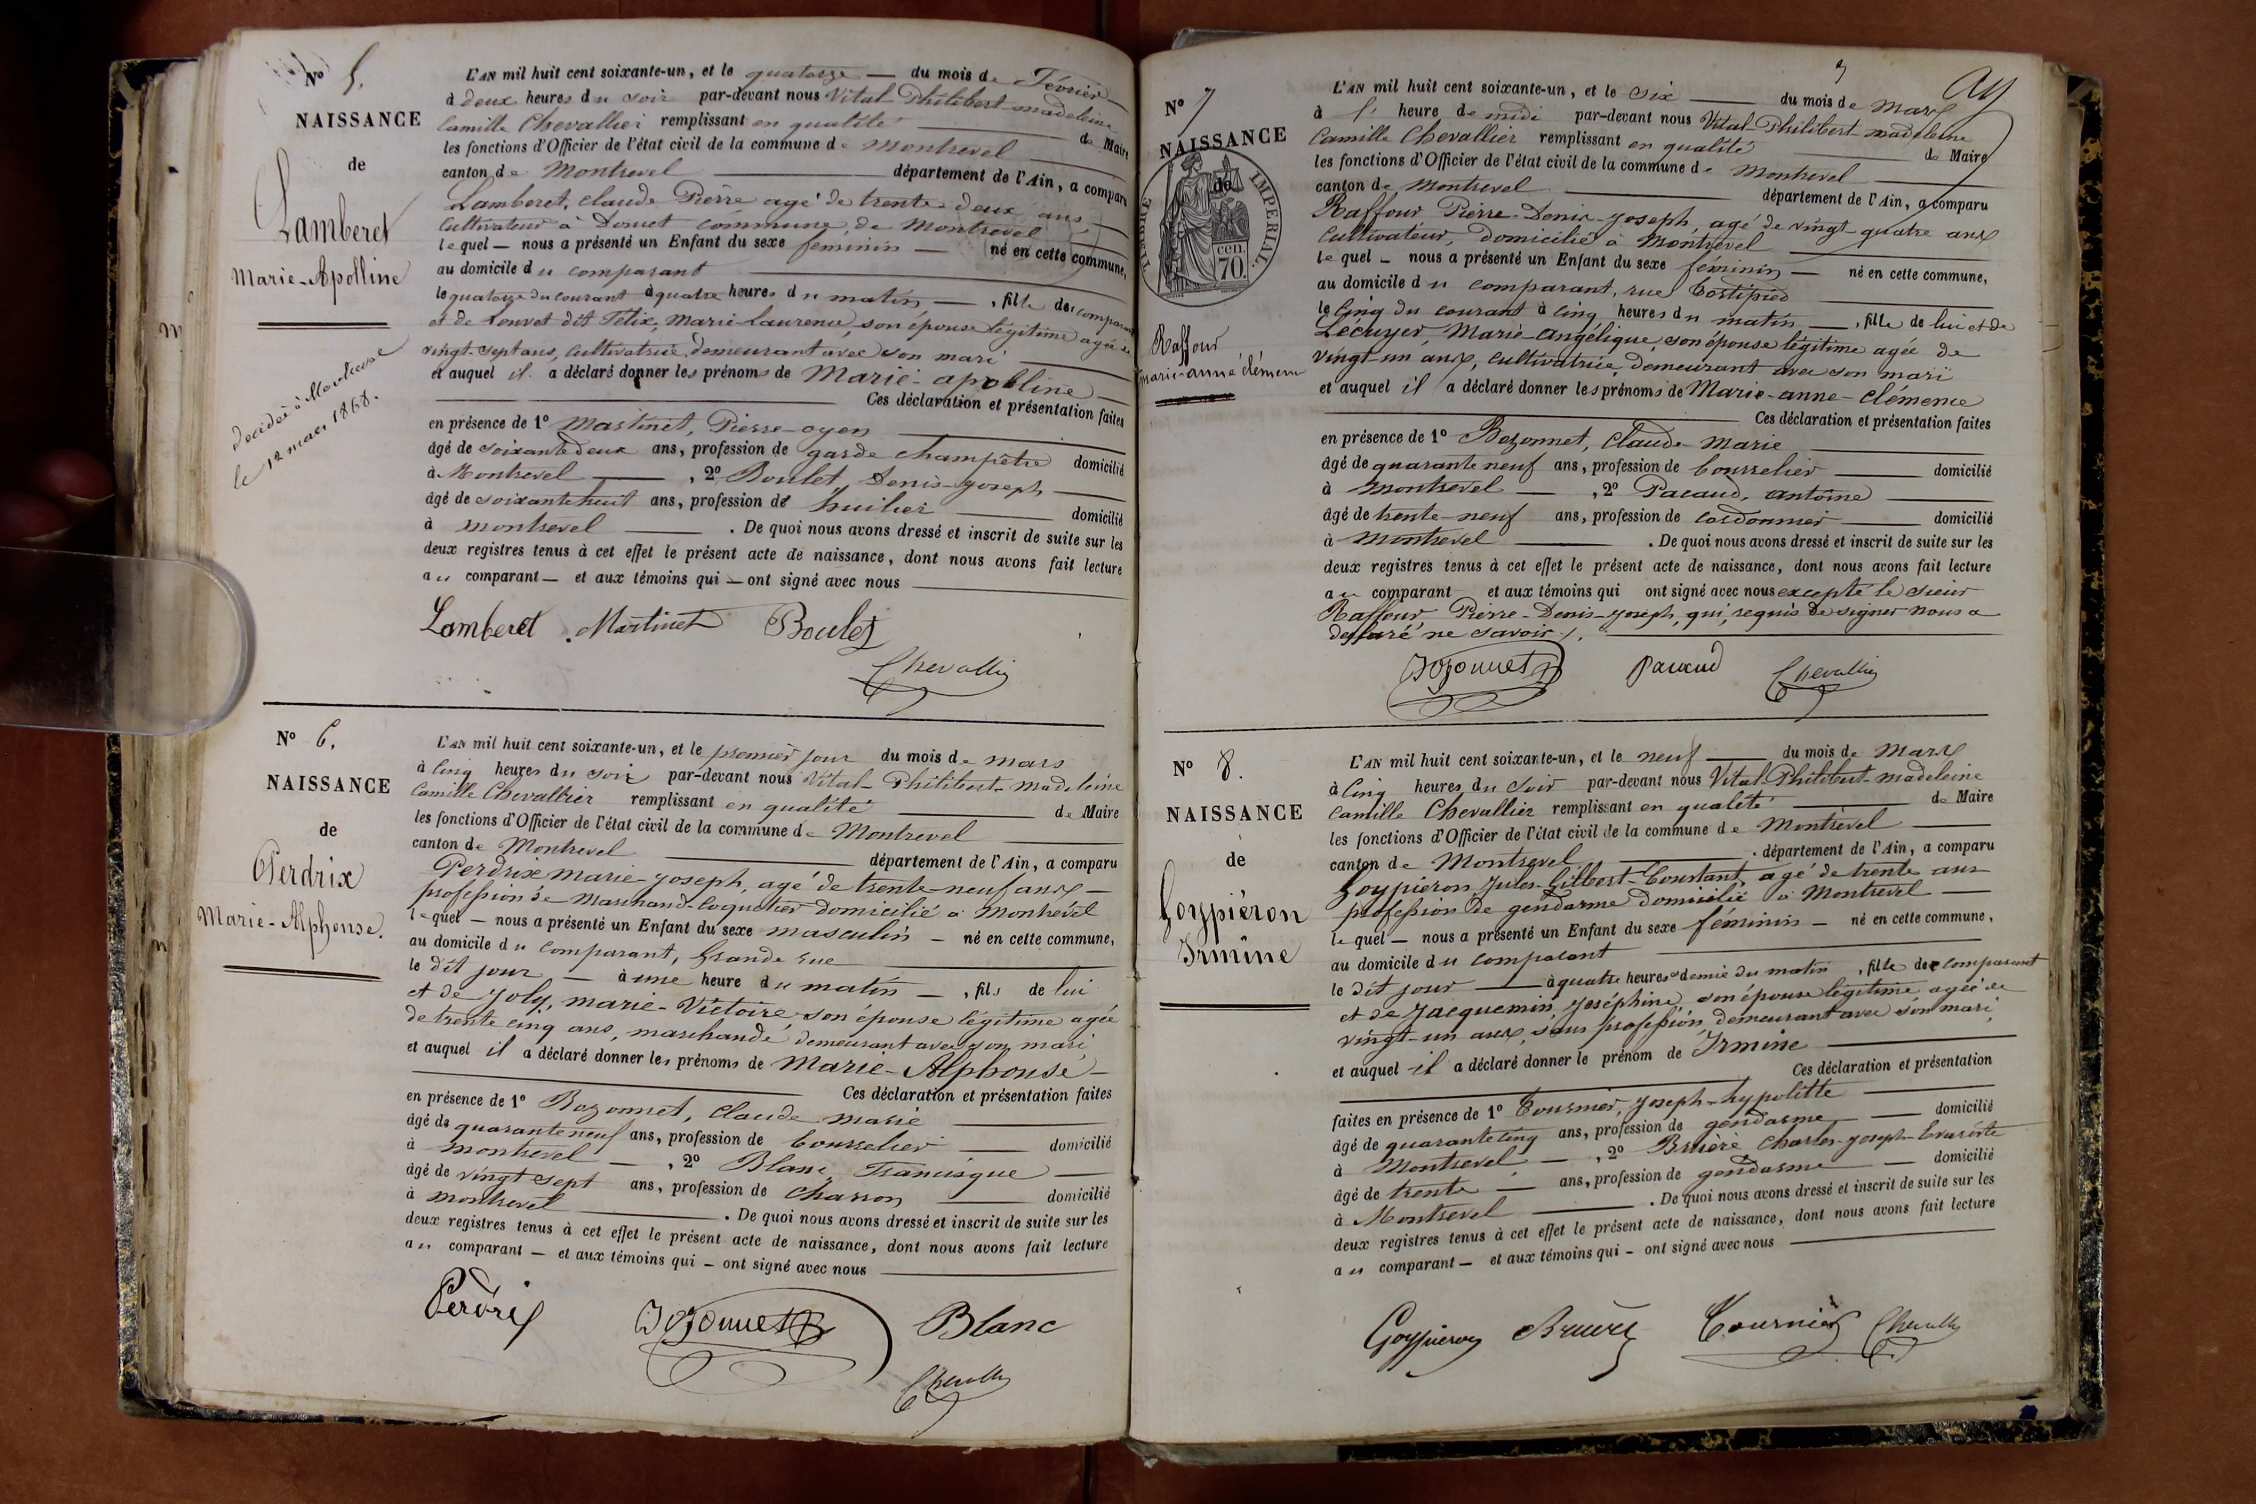 N° 5.
NAISSANCE
de
Lamberet
Marie-Apolline
Decédée à
le 12 mars 1868.
L'AN mil huit cent soixante-un, et le quatorze — du mois de Février —
à deux heures du soir par-devant nous Vital-Philibert-madeleine
Camille Chevallier remplissant en qualité — de Maire
les fonctions d'Officier de l'état civil de la commune de Montrevel —
canton de Montrevel — département de l'Ain, a comparu
Lamberet, Claude Pierre agé de trente deux ans,
Cultivateur à Donuet commune de Montrevel
lequel — nous a présenté un Enfant du sexe féminin — né en cette commune,
au domicile du comparant —
le quatorze du courant à quatre heures du matin — , fille du comparant
et de Louvet dit Félix, Marie-Laurence, son épouse légitime agée de
vingt-sept ans, Cultivatrice, demeurant avec son mari —
et auquel il a déclaré donner les prénoms de Marie-apolline —
Ces déclaration et présentation faites
en présence de 1° Martinet, Pierre-oyen —
âgé de soixante deux ans, profession de garde champêtre domicilié
à Montrevel — , 2° Boulet Denis-joseph —
âgé de soixante huit ans, profession de huilier — domicilié
à montrevel — . De quoi nous avons dressé et inscrit de suite sur les
deux registres tenus à cet effet le présent acte de naissance, dont nous avons fait lecture
au comparant — et aux témoins qui — ont signé avec nous —
Lamberet Martinet Boulet
Chevallier
N° 6.
NAISSANCE
de
Perdrix
Marie-Alphonse.
L'AN mil huit cent soixante-un, et le premier jour du mois de mars
à cinq heures du soir par-devant nous Vital-Philibert-madeleine
Camille Chevallier remplissant en qualité — de Maire
les fonctions d'Officier de l'état civil de la commune de Montrevel —
canton de Montrevel — département de l'Ain, a comparu
Perdrix marie-joseph, agé de trente-neuf ans —
profession de marchand-Coquetier domicilié à Montrevel
lequel — nous a présenté un Enfant du sexe masculin — né en cette commune,
au domicile du comparant, Grande rue —
le dit jour — à une heure du matin — , fils de lui
et de Joly, marie-Victoire son épouse légitime agée
de trente cinq ans, marchande demeurant avec son mari,
et auquel il a déclaré donner les prénoms de Marie-Alphonse —
Ces déclaration et présentation faites
en présence de 1° Bozonnet, Claude marie —
âgé de quarante neuf ans, profession de bourrelier — domicilié
à montrevel — , 2° Blanc, Francisque —
âgé de vingt sept ans, profession de charron — domicilié
à montrevel — . De quoi nous avons dressé et inscrit de suite sur les
deux registres tenus à cet effet le présent acte de naissance, dont nous avons fait lecture
au comparant — et aux témoins qui — ont signé avec nous —
Perdrix Bozonnet Blanc
Chevallier
3
N° 7
NAISSANCE
de
TIMBRE IMPERIAL
70 cen.
Raffour
marie-anne clémence
L'AN mil huit cent soixante-un, et le six — du mois de Mars
à l' heure de midi par-devant nous Vital-Philibert-madeleine
Camille Chevallier remplissant en qualité — de Maire
les fonctions d'Officier de l'état civil de la commune de Montrevel —
canton de Montrevel — département de l'Ain, a comparu
Raffour Pierre-Denis-joseph, agé de vingt-quatre ans
Cultivateur, domicilié à Montrevel —
lequel — nous a présenté un Enfant du sexe féminin — né en cette commune,
au domicile du comparant, rue Tortipied —
le cinq du courant à cinq heures du matin — , fille de lui et de
Lécuyer, Marie-angélique, son épouse légitime agée de
vingt-un ans, cultivatrice, demeurant avec son mari
et auquel il a déclaré donner les prénoms de Marie-anne-clémence
Ces déclaration et présentation faites
en présence de 1° Bozonnet, Claude-Marie —
âgé de quarante neuf ans, profession de bourrelier — domicilié
à Montrevel — , 2° Pacaud, antoine —
âgé de trente-neuf ans, profession de cordonnier — domicilié
à Montrevel — . De quoi nous avons dressé et inscrit de suite sur les
deux registres tenus à cet effet le présent acte de naissance, dont nous avons fait lecture
au comparant et aux témoins qui ont signé avec nous excepté le sieur
Raffour Pierre-Denis-joseph, qui, requis de signer nous a
déclaré ne savoir. —
Bozonnet Pacaud Chevallier
N° 8.
NAISSANCE
de
Goypiéron
Irmine
L'AN mil huit cent soixante-un, et le neuf — du mois de Mars
à cinq heures du soir par-devant nous Vital-Philibert-madeleine
Camille Chevallier remplissant en qualité — de Maire
les fonctions d'Officier de l'état civil de la commune de Montrevel —
canton de Montrevel — . département de l'Ain, a comparu
Goypieron Jules-Gilbert-Constant, agé de trente ans
profession de gendarme domicilié à Montrevel —
lequel — nous a présenté un Enfant du sexe féminin — né en cette commune,
au domicile du comparant —
le dit jour — à quatre heures et demie du matin , fille du comparant
et de Jacquemin, joséphine, son épouse légitime agée de
vingt-un ans, sans profession, demeurant avec son mari,
et auquel il a déclaré donner le prénom de Irmine —
Ces déclaration et présentation
faites en présence de 1° Tournier, joseph-hypolitte —
âgé de quarante cinq ans, profession de gendarme — domicilié
à Montrevel — , 2° Bruère Charles-joseph-Evariste
âgé de trente — ans, profession de gendarme — domicilié
à Montrevel — . De quoi nous avons dressé et inscrit de suite sur les
deux registres tenus à cet effet le présent acte de naissance, dont nous avons fait lecture
au comparant — et aux témoins qui — ont signé avec nous —
Goypieron Bruère Tournier Chevallier